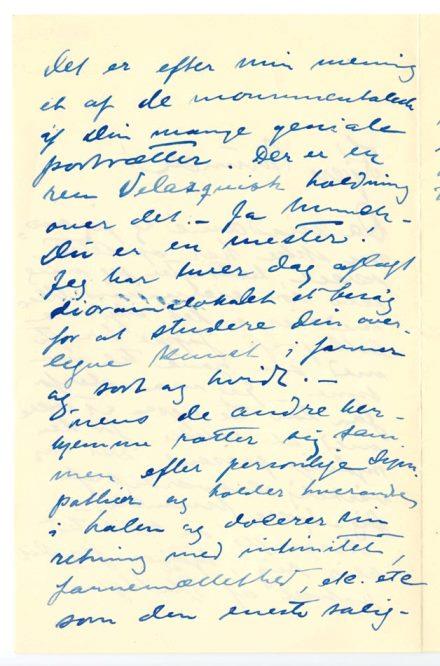 Det er efter min mening
et af de monumentaleste
af Din mange geniale
portrætter. Der er en
ren Velasquisk holdning
over det. – Ja Munch –
Du er en mester!
Jeg har hver dag aflagt
dioramalokalet et besøg
for at studere din over-
legne Kunst i farver
og sort og hvidt. –
Ónens de andre her-
hjemme rotter sig sam-
men efter personlige Sym-
pathier og holder hverandre
i halen og dolerer sin
retning med intimitet,
farvemættethed, etc. etc
som den eneste salig-